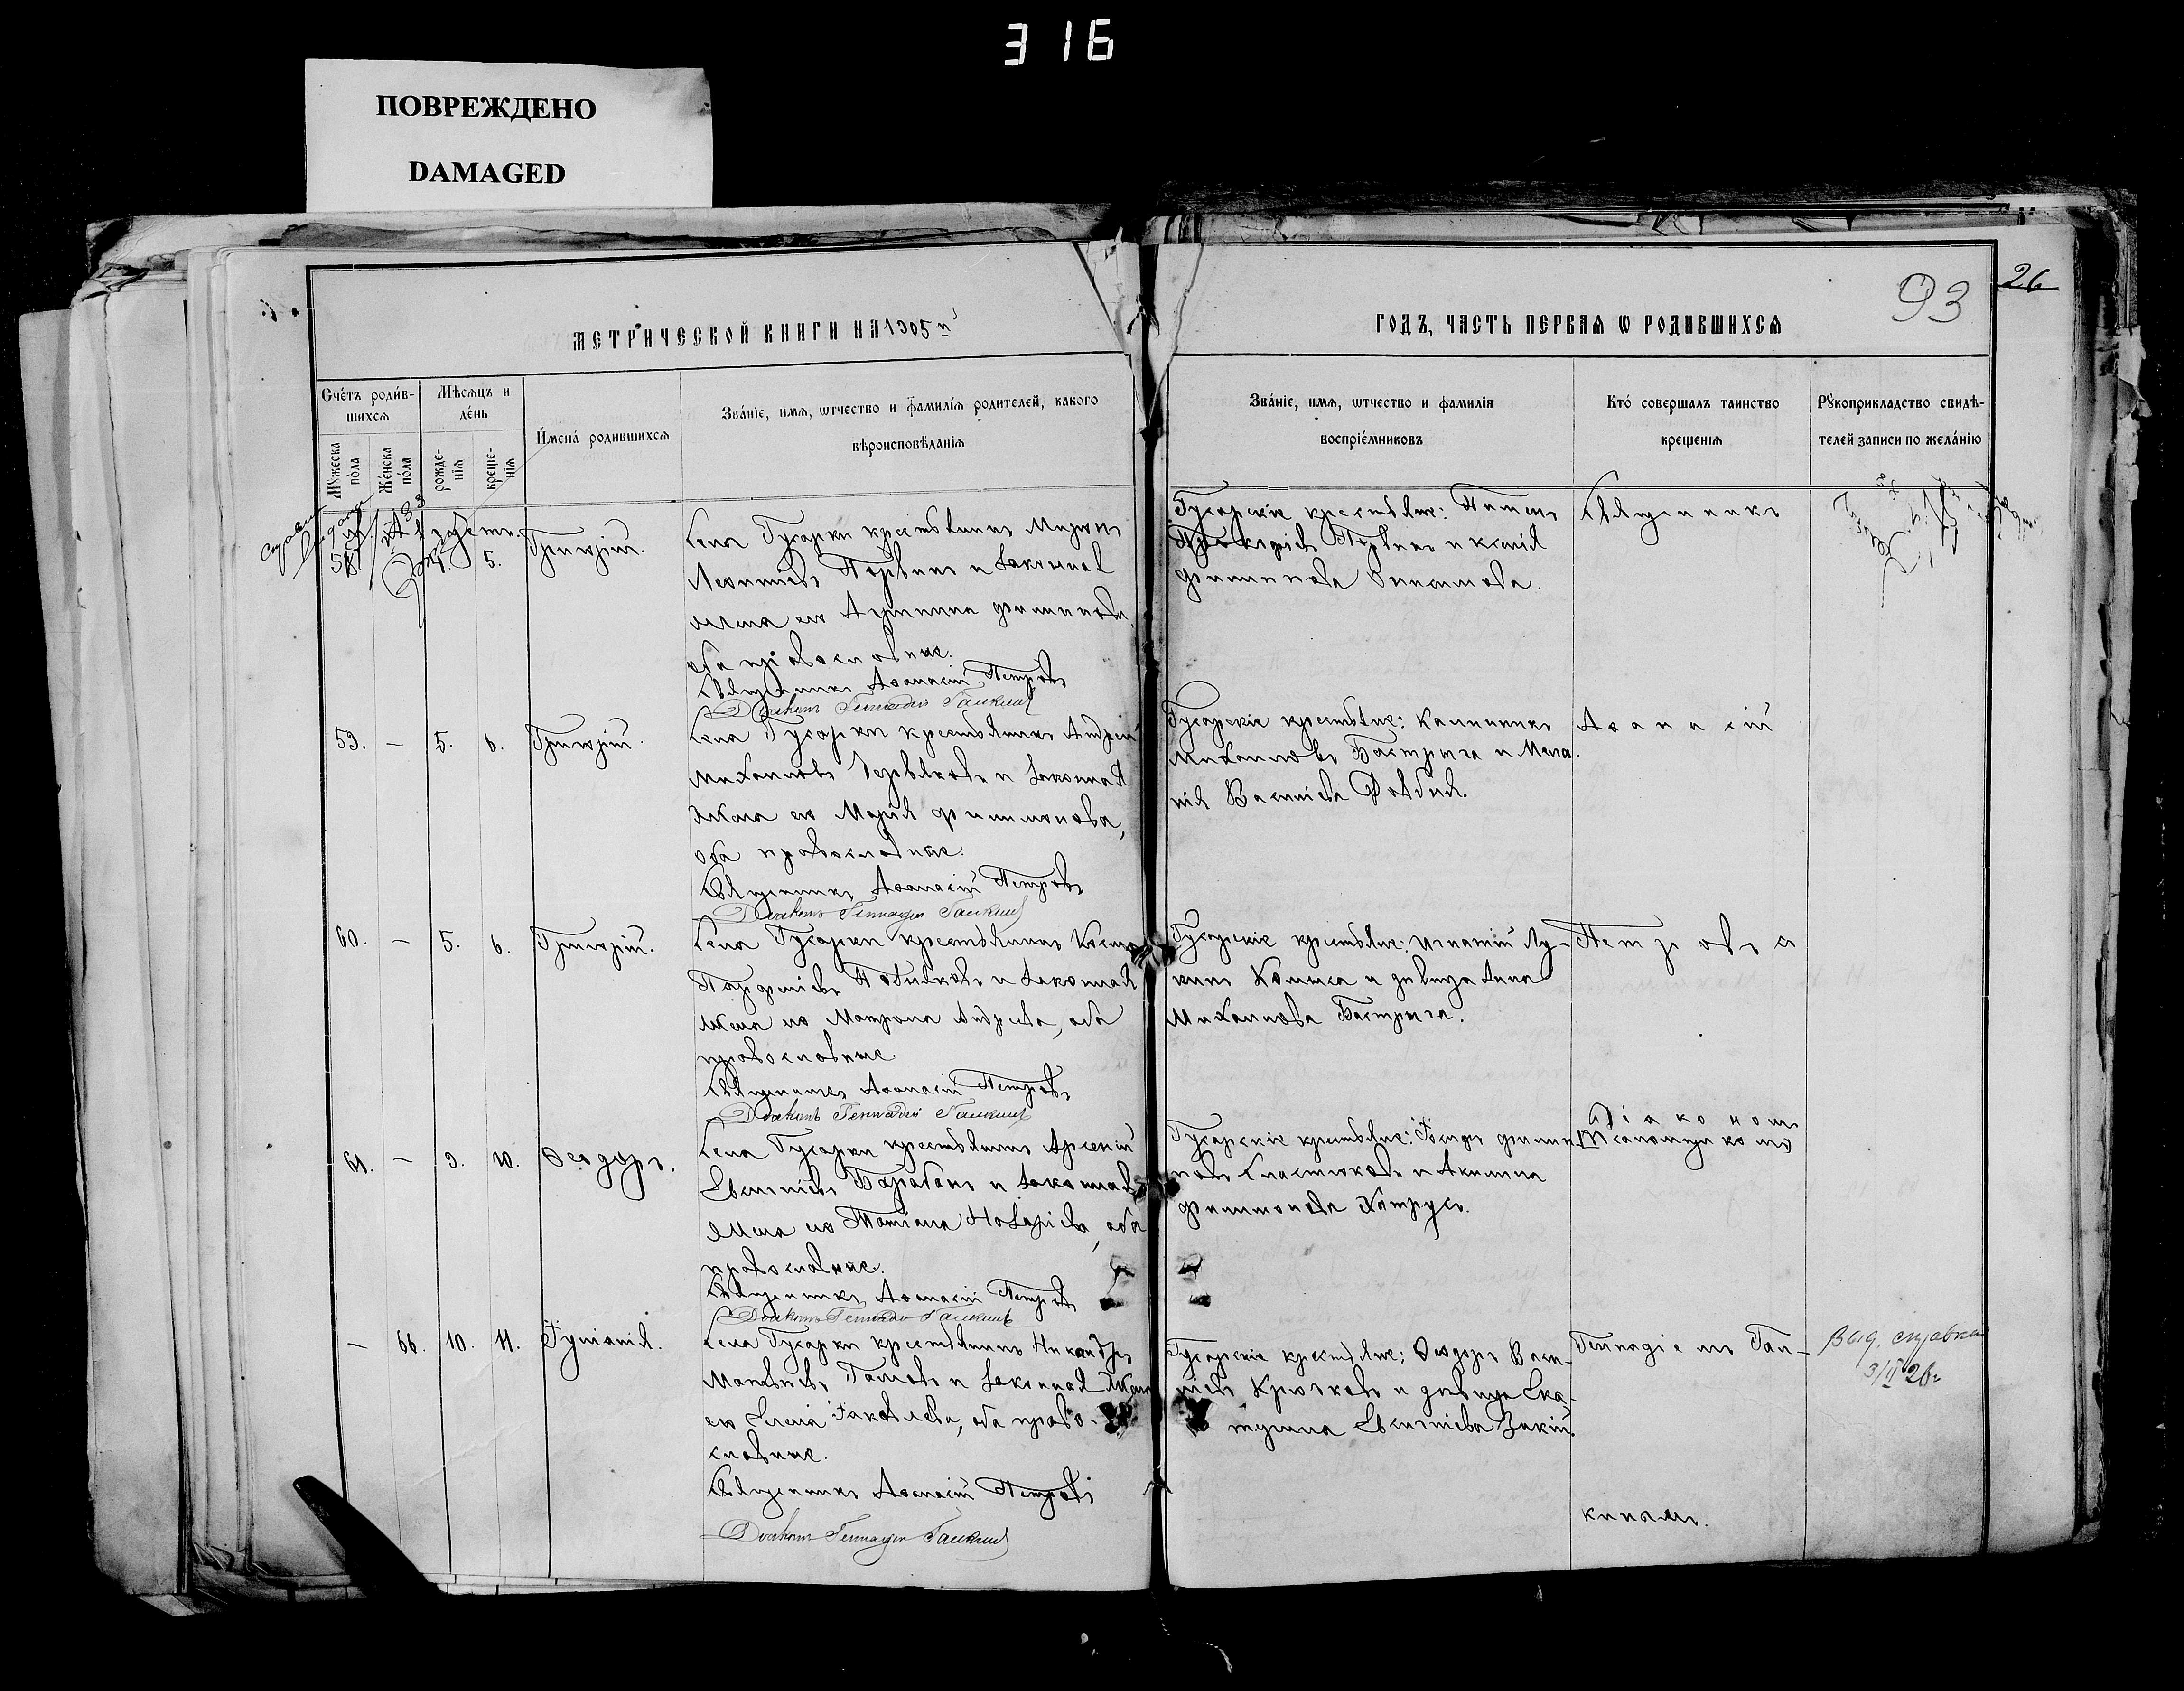 316
ПОВРЕЖДЕНО
DAMAGED
МЕТРИЧЕСКОЙ КНИГИ НА 1905 й
ГОДЪ, ЧАСТЬ ПЕРВАЯ Ѡ РОДИВШИХСЯ
93
26
Счетъ родив-
шихся
Мужеска
пола
Женска
пола
Мѣсяцъ и
день
рожде-
нія
креще-
нія
Имена родившихся
Званіе, имя, ѿтчество и фамилія родителей, какого
вѣроисповѣданія
Званіе, имя, ѿтчество и фамилія
воспріемниковъ
Кто совершалъ таинство
крещенія
Рукоприкладство свидѣ-
телей записи по желанію
58.
5.
Григорій.
Села Гусарки крестьянинъ Миронъ
Леонтіевъ Первинъ и законная
жена его Агрипина Филиппова,
оба православные.
Священникъ Аѳанасій Петровъ
Діаконъ Геннадій Галкинъ
Гусарскіе крестьяне: Пименъ
Первинъ и Ксенія
Филиппова Онисимова.
Священникъ
59. — 5. 6. Григорій.
Села Гусарки крестьянинъ Андрей
Михаиловъ Червяковъ и законная
жена его Марія Филимонова,
оба православные.
Священникъ Аѳанасій Петровъ
Діаконъ Геннадій Галкинъ
Гусарскіе крестьяне: Калинникъ
Михаиловъ Бастрыга и Мела-
нія Василіева Довбня.
Аѳанасій
60. — 5. 6. Григорій.
Села Гусарки крестьянинъ Косма
Парфеніевъ Новиковъ и законная
жена его Матрона Андреева, оба
православные
Священникъ Аѳанасій Петровъ
Діаконъ Геннадій Галкинъ
Гусарскіе крестьяне: Игнатій Лу-
кинъ Комыса и дѣвица Анна
Михаилова Бастрыга.
Петровъ съ
61. — 9. 10. Ѳеодоръ.
Села Гусарки крестьянинъ Арсеній
Евсигніевъ Барабанъ и законная
жена его Татіана Назаріева, оба
православные.
Священникъ Аѳанасій Петровъ
Діаконъ Геннадій Галкинъ
Гусарскіе крестьяне: Іосифъ Филип-
повъ Сластюковъ и Акилина
Филимонова Хатрусъ.
Діакономъ
псаломщикомъ
— 66. 10. 11. Іуліанія.
Села Гусарки крестьянинъ Никандръ
Матвѣевъ Галовъ и законная жена
его Елена Іаковлева, оба право-
славные.
Священникъ Аѳанасій Петровъ
Діаконъ Геннадій Галкинъ
Гусарскіе крестьяне: Ѳеодоръ Васи-
ліевъ Крючковъ и дѣвица Ека-
терина Евсигніева Дикій.
Геннадіемъ Гал-
кинымъ.
Выд. справка
3/II 26г